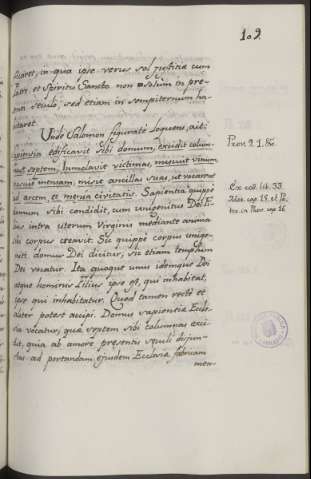 109.
ficaret, in qua ipse verus sol justitiæ cum
Patri, et Spiritu Sancto non solum in pre-
senti seculo, sed etiam in sempiternum ha-
bitaret.
Unde Salomon figuratè loquens, ait:
sapientia edificavit sibi domum, excidit colum-
nas septem, immolavit victimas, miscuit vinum
misit ancillas suas, ut vocarent
ad arcem, et menia civitatis. Sapientia quippe
domum sibi condidit, cum unigenitus Dei Fi-
lius intra uterum Virginis mediante anima
sibi corpus creavit. Sic quippe corpus unige-
niti domus Dei dicitur, sic etiam templum
Dei vocatur. Ita quoque unus idemque Dei
atque hominis Filius ipse est, qui inhabitat,
ipse qui inhabitatur. Quod tamen rectè et
aliter potest accipi. Domus sapientia Eccle-
sia vocatur, quæ septem sibi columnas exci-
dit, quia ab amore presentis seculi disjun-
ctas ad portandam ejusdem Ecclesiæ fabricam
men-
Prov. 9. 1. &c.
lib. 33
cap. 16